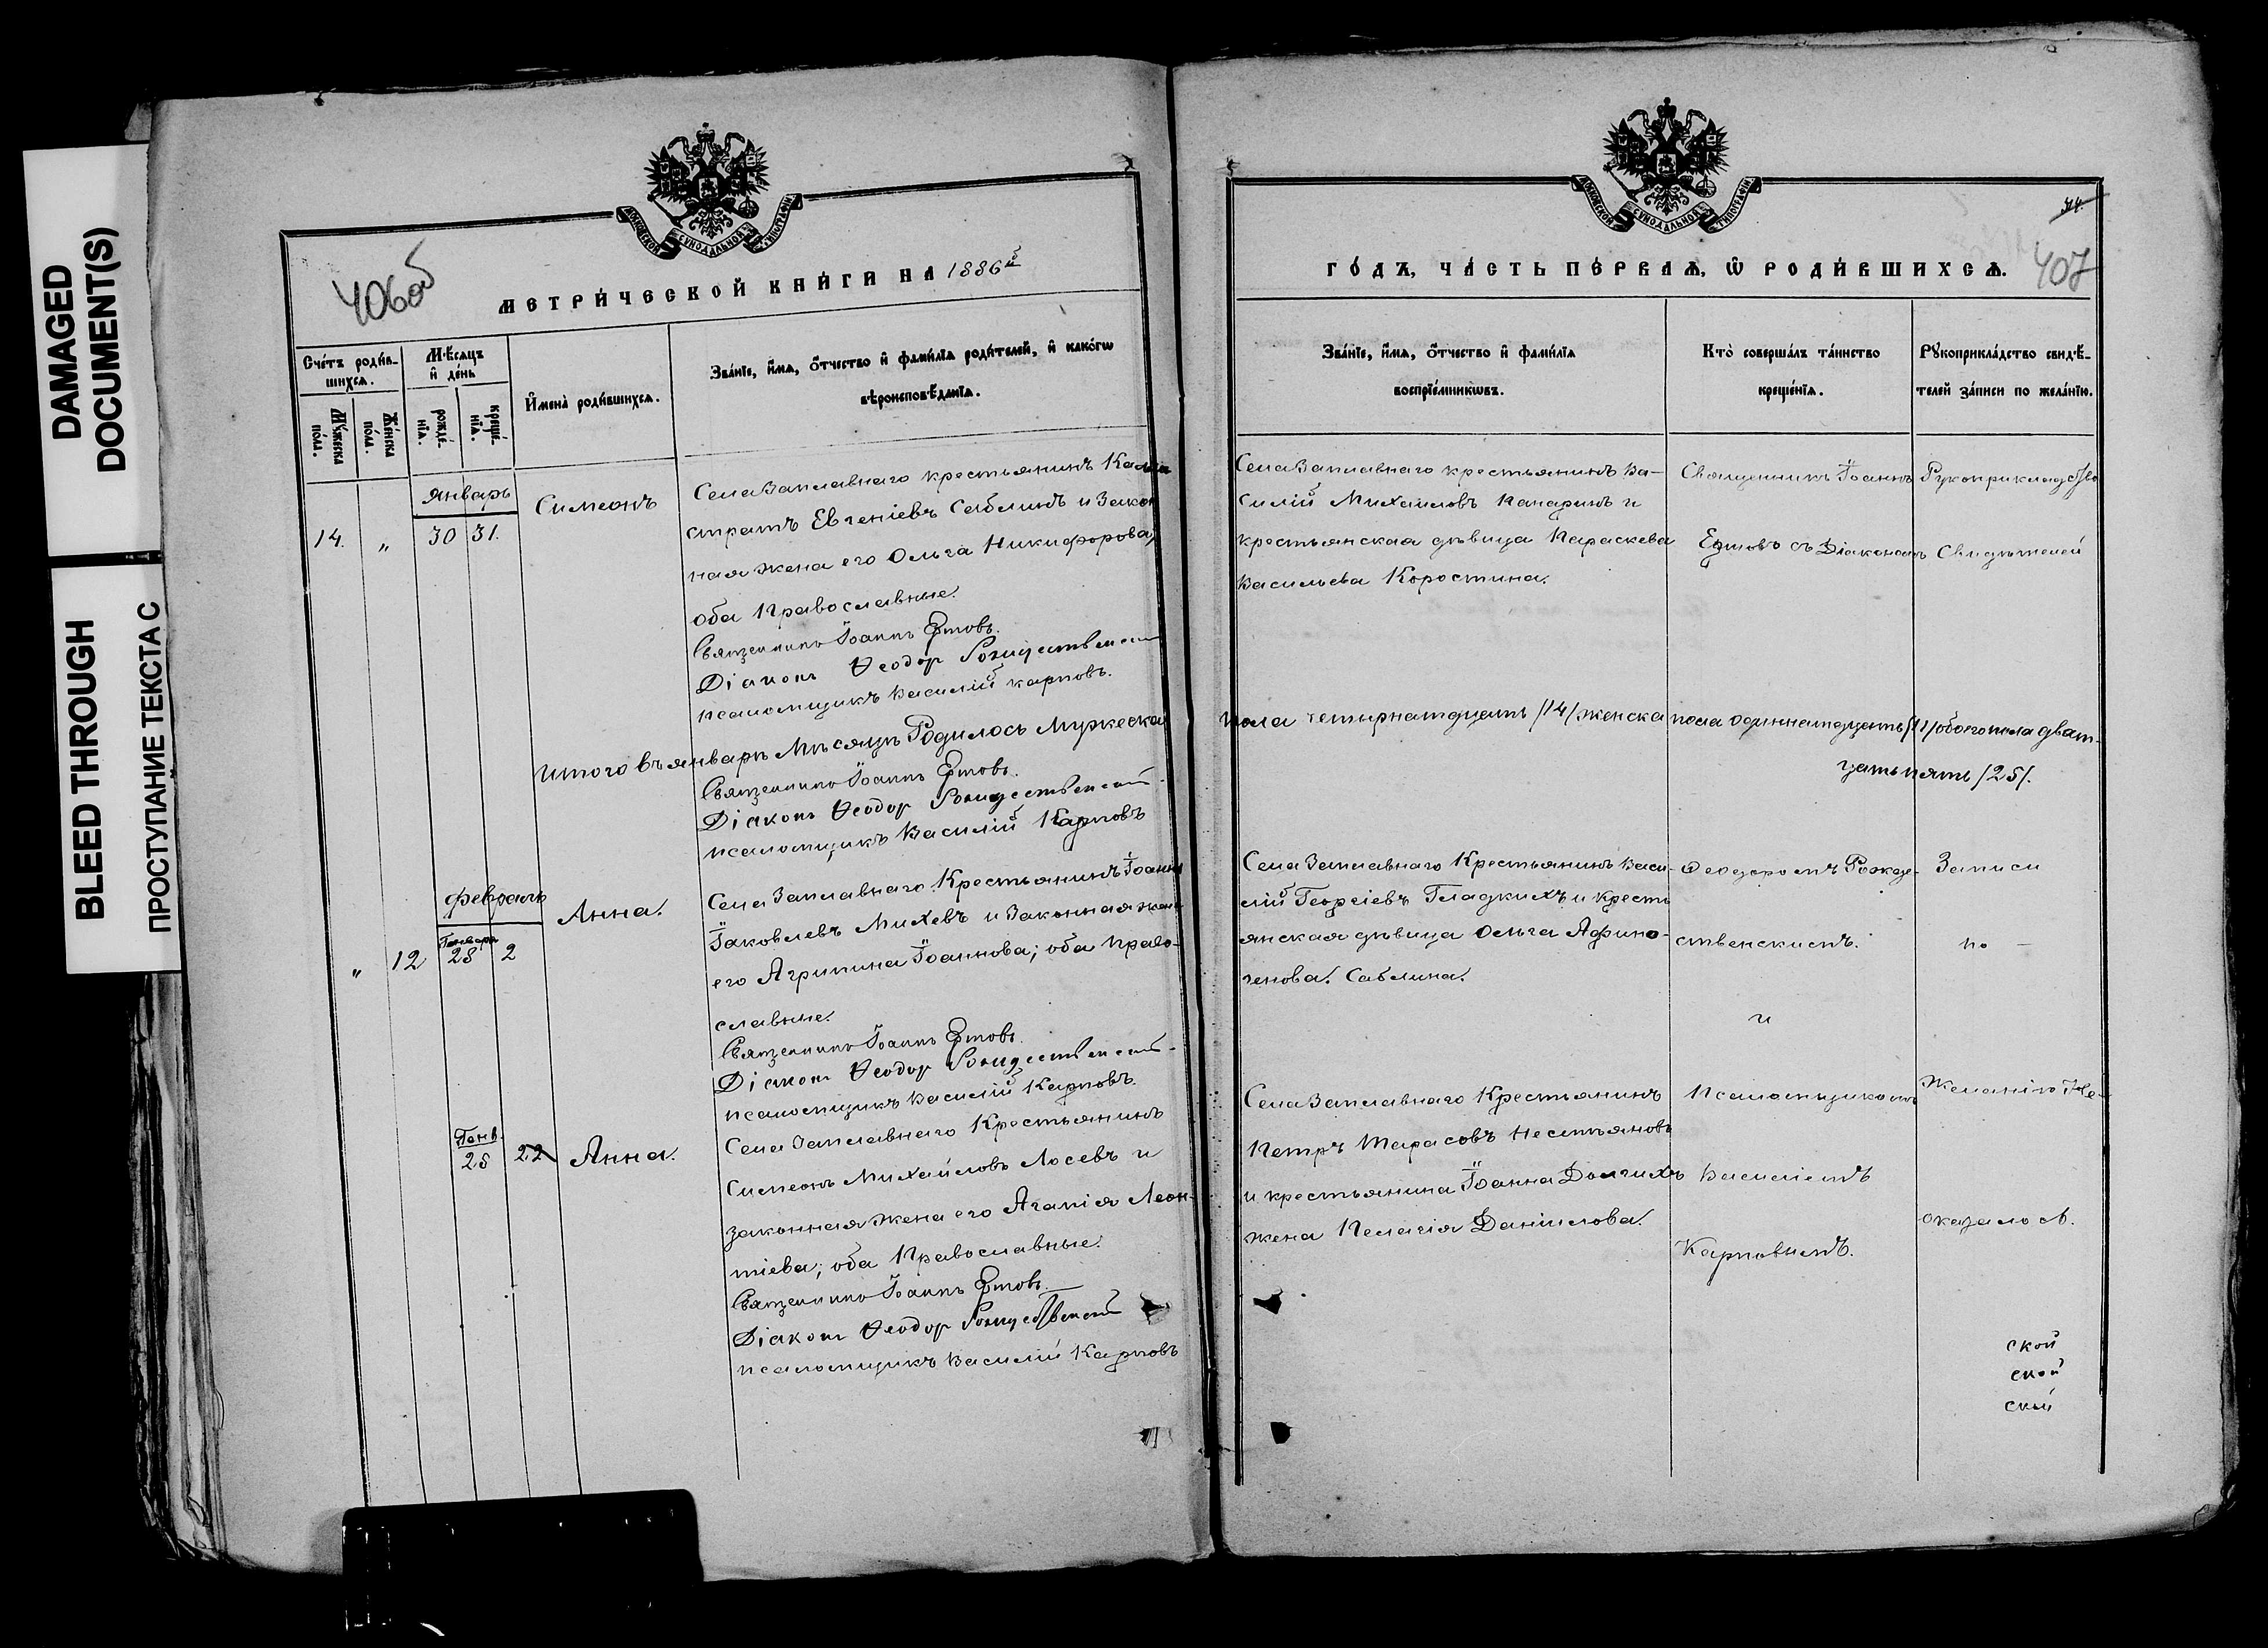 DAMAGED
DOCUMENT(S)
BLEED THROUGH
ПРОСТУПАНИЕ ТЕКСТА С
МОСКОВСКОЙ СѴНОДАЛЬНОЙ ТИПОГРАФІИ
406об
МЕТРИ́ЧЕСКОЙ КНИ́ГИ НА 1886й
Сче́тъ роди́в-
шихсѧ.
Мꙋ́жеска
по́ла.
Же́нска
по́ла.
Мѣ́сѧцъ
и҆ де́нь
рожде́-
нїѧ.
креще́-
нїѧ.
И҆мена̀ роди́вшихсѧ.
Зва́нїе, и҆́мѧ, ѻ҆́тчество и҆ фами́лїѧ роди́телей, и҆ како́гѡ
вѣроисповѣ́данїѧ.
январь
14. „ 30 31.
Симеонъ
Села Заплавнаго крестьянинъ Кали-
стратъ Евгеніевъ Саблинъ и Закон
ная жена его Ольга Никифорова,
оба Православные.
Священникъ Іоаннъ Ертовъ.
Діаконъ Ѳеодор Рождественскій
псаломщикъ Василій Карповъ.
Итого въ январѣ Мѣсяцѣ Родилось Мужеска
Священникъ Іоаннъ Ертовъ.
Діаконъ Ѳеодор Рождественскій
псаломщикъ Василій Карповъ
февраль
Генваря
„ 12 28 2
Анна.
Села Заплавнаго Крестьянинъ Іоаннъ
Іаковлевъ Михевъ и Законная жена
его Агрипина Іоаннова; оба право-
славные.
Священникъ Іоаннъ Ертовъ.
Діаконъ Ѳеодор Рождественскій
псаломщикъ Василій Карповъ.
Генв.
25 22
Анна.
Села Заплавнаго Крестьянинъ
Симеонъ Михайловъ Лосевъ и
законная жена его Агапія Леон-
тіева; оба Православные.
Священникъ Іоаннъ Ертовъ.
Діаконъ Ѳеодор Рождественскій
псаломщикъ Василій Карповъ
МОСКОВСКОЙ СѴНОДАЛЬНОЙ ТИПОГРАФІИ
407
ГО́ДЪ, ЧА́СТЬ ПЕ́РВАѦ, Ѡ҆ РОДИ́ВШИХСѦ.
Зва́нїе, и҆́мѧ, ѻ҆́тчество и҆ фами́лїѧ
воспрїе́мникѡвъ.
Кто̀ соверша́лъ та́инство
креще́нїѧ.
Рꙋкоприкла́дство свидѣ́-
телей за́писи по жела́нїю.
Села Заплавнаго крестьянинъ Ва-
силій Михаиловъ Канаринъ и
крестьянская дѣвица Параскева
Васильева Коростина.
Священникъ Іоаннъ
Ертовъ съ Діакономъ
Рукоприкладство
Свидѣтелей
пола четырнатцать /14/ женска пола одиннатцать /11/ обоего пола дват-
цать пять /25/.
Села Заплавнаго Крестьянинъ Васи-
лій Георгіевъ Гладкихъ и кресть
янская дѣвица Ольга Афино-
генова. Саблина.
Ѳеодоромъ Рожде-
ственскимъ.
и
Записи
по -
Села Заплавнаго Крестьянинъ
Петръ Тарасовъ Нестьяновъ
и крестьянина Іоанна Долгихъ
жена Пелагія Даніилова.
Псаломщикомъ
Василіемъ
Карповымъ.
Желанію Не-
оказалось.
ской
ской
ской